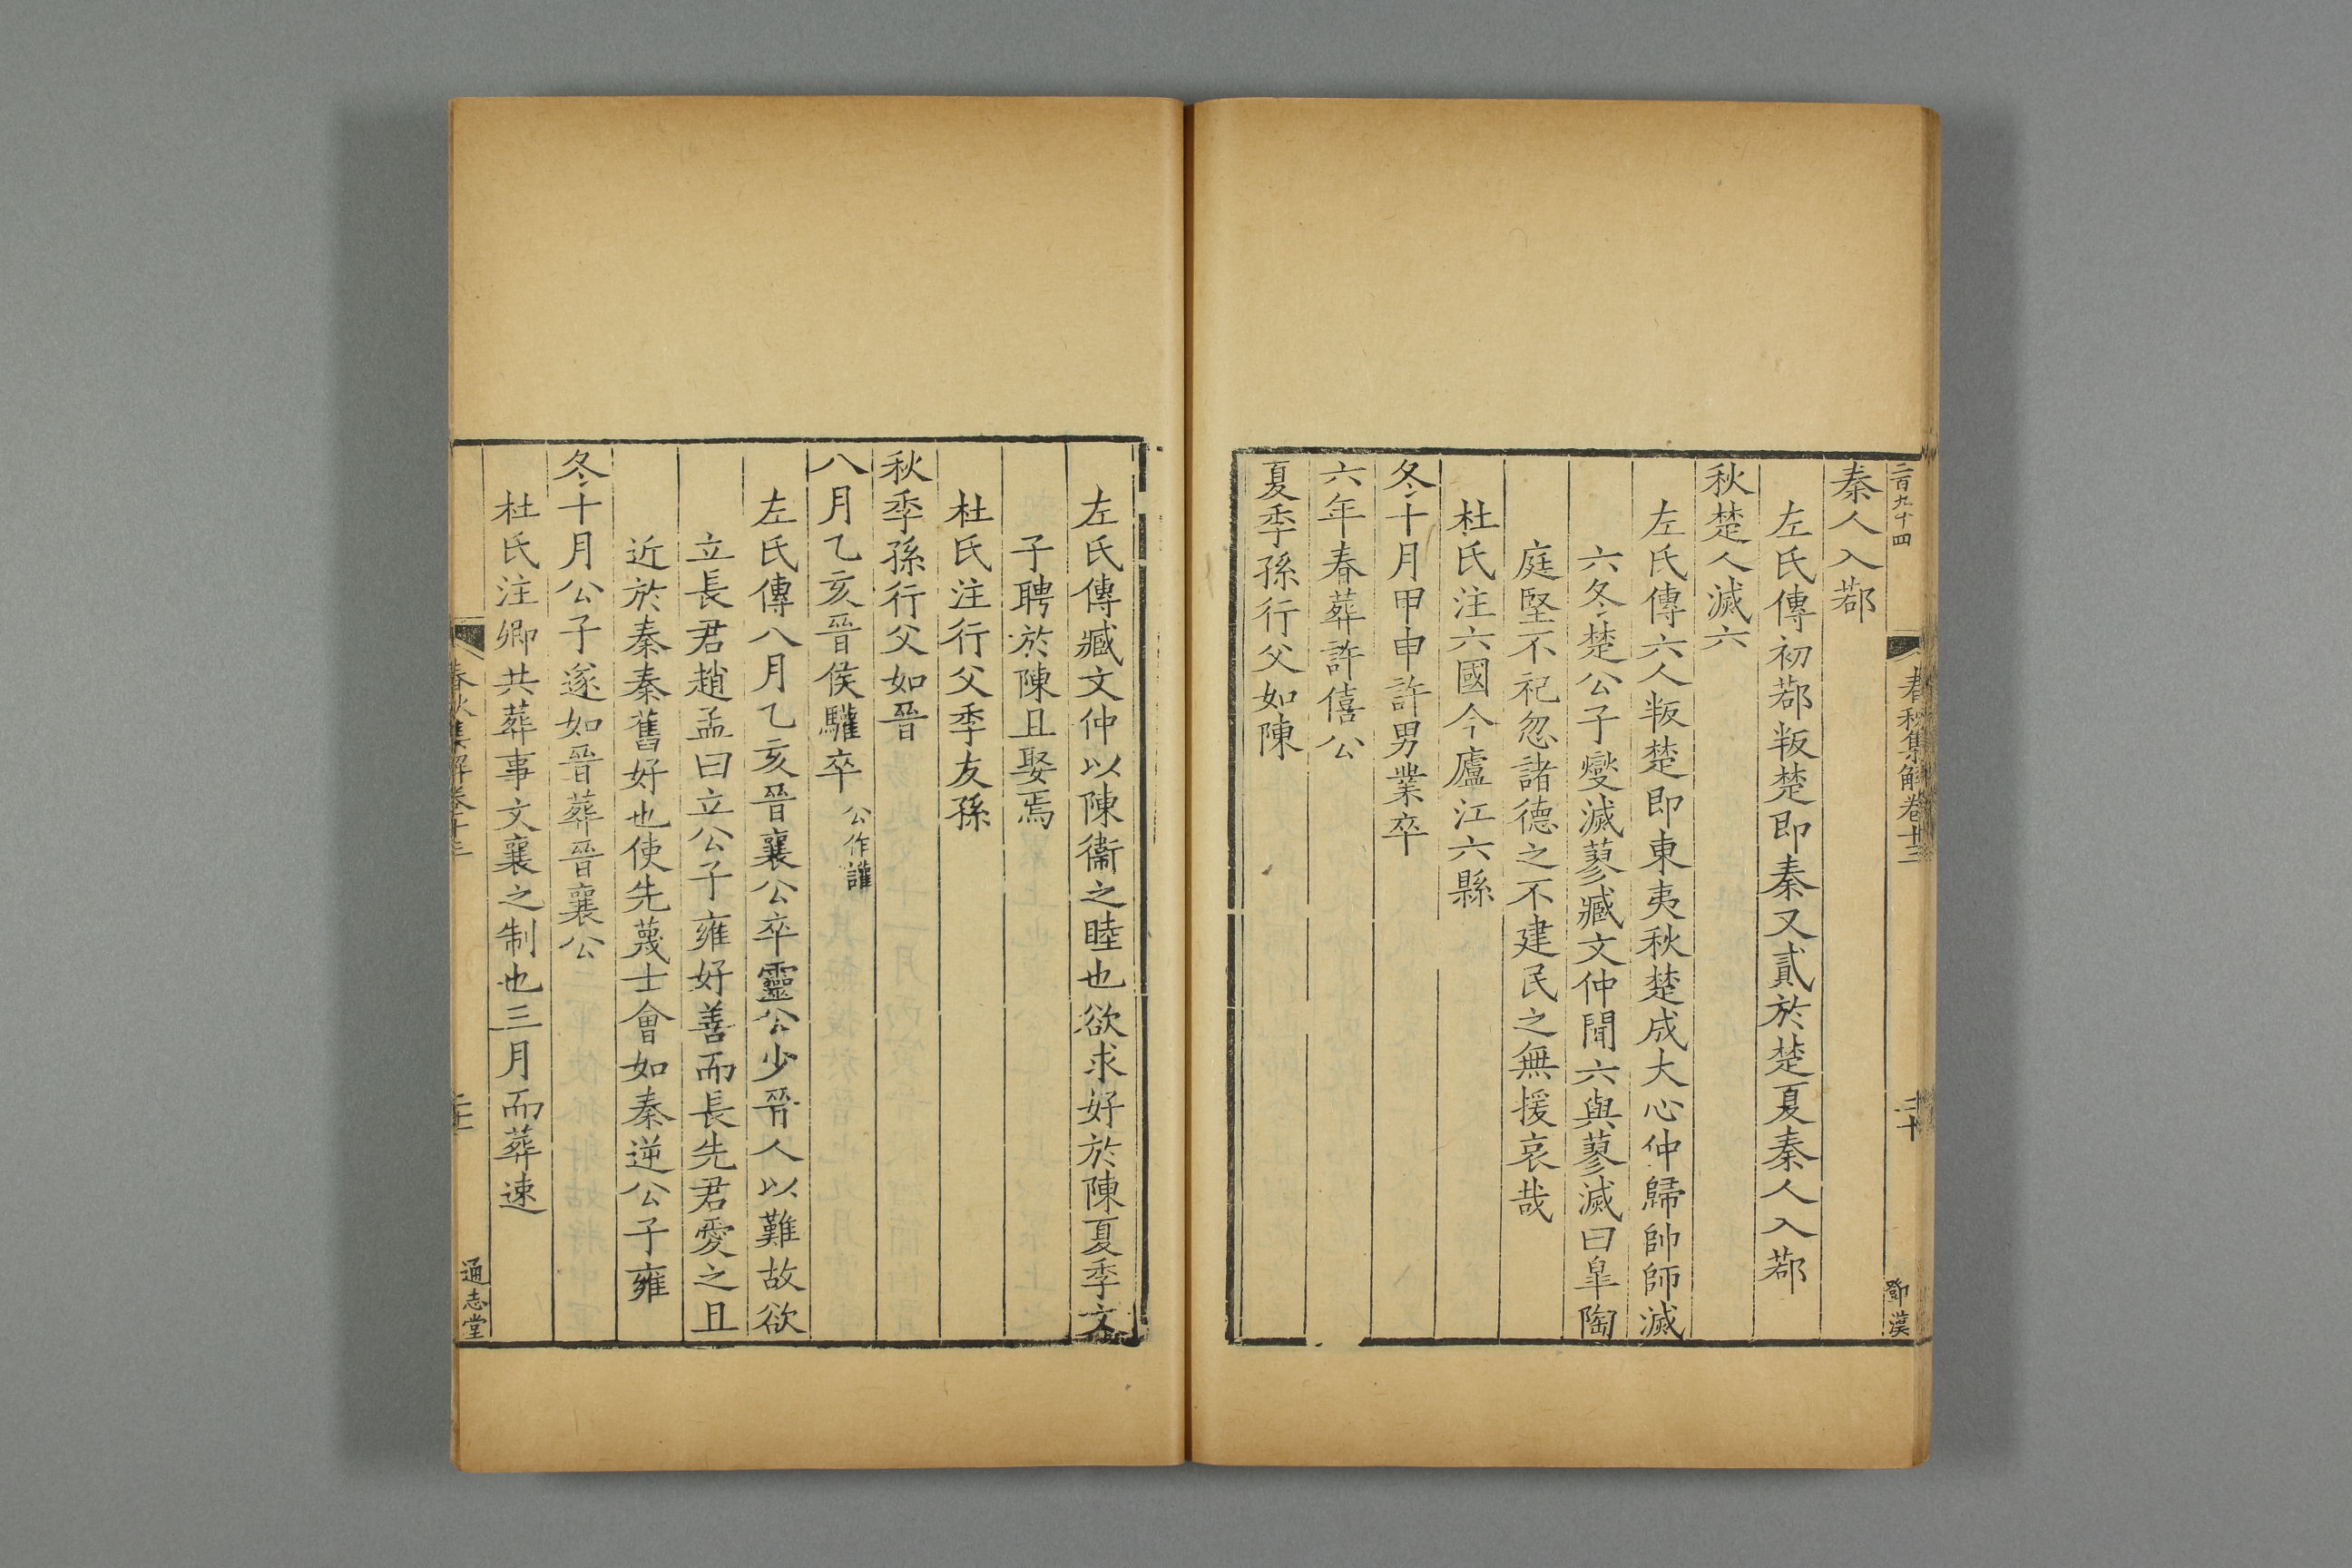 二百九十四
春秋集解卷十三
二十
鄧漢
秦人入鄀
左氏傳初鄀叛楚即秦又貳於楚夏秦人入鄀
秋楚人滅六
左氏傳六人叛楚即東夷秋楚成大心仲歸帥師滅
六冬楚公子燮滅蓼臧文仲聞六與蓼滅曰臯陶
庭堅不祀忽諸德之不建民之無援哀哉
杜氏注六國今廬江六縣
冬十月甲申許男業卒
六年春葬許僖公
夏季孫行父如陳
左氏傳臧文仲以陳衞之睦也欲求好於陳夏季文
子聘於陳且娶焉
杜氏注行父季友孫
秋季孫行父如晉
八月乙亥晉侯驩卒公作讙
左氏傳八月乙亥晉襄公卒靈公少晉人以難故欲
立長君趙孟曰立公子雍好善而長先君愛之且
近於秦秦舊好也使先蔑士會如秦逆公子雍
冬十月公子遂如晉葬晉襄公
杜氏注卿共葬事文襄之制也三月而葬速
春秋集解卷十三
通志堂